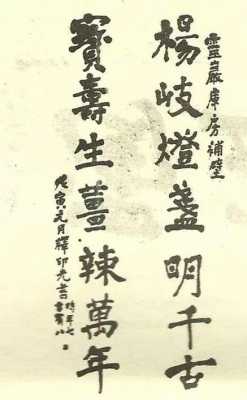 靈巖庫房補壁
楊岐燈盞明千古
寶壽生薑辣萬年
戊寅元月釋印光書時年七十有八